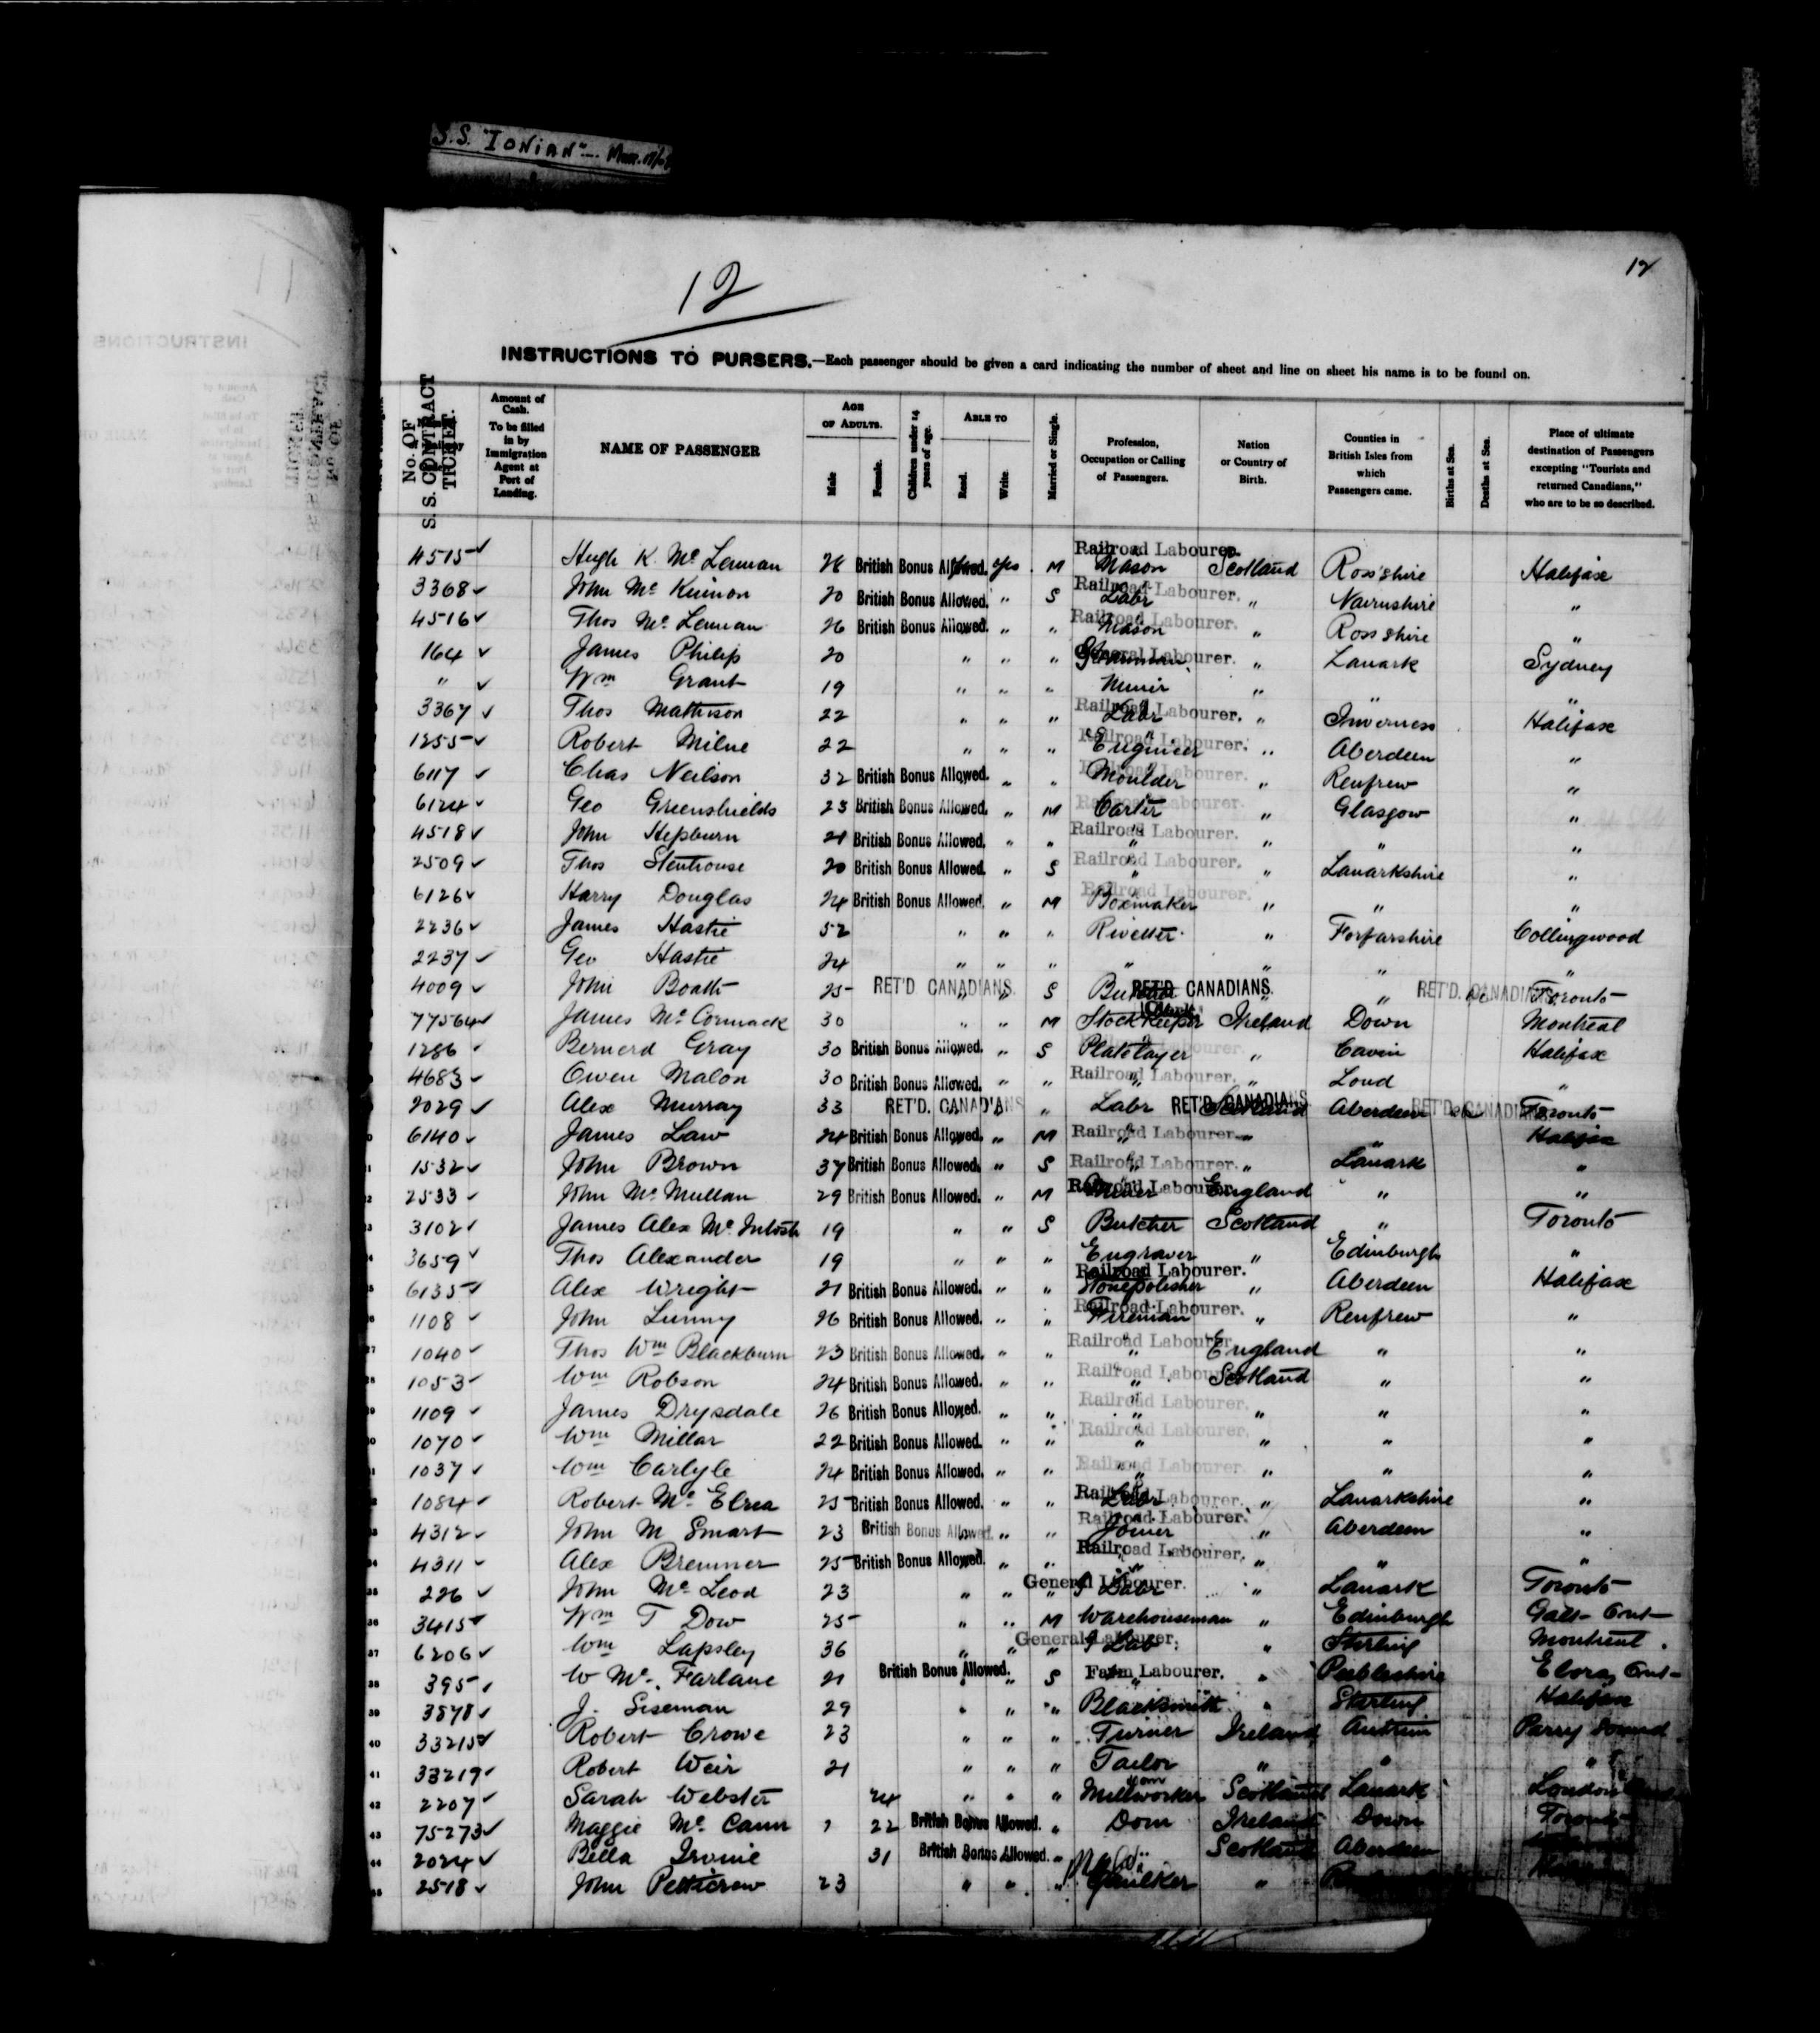 S.S. "IONIAN" Mar.
12
12
INSTRUCTIONS TO PURSERS.—Each passenger should be given a card indicating the number of sheet and line on sheet his name is to be found on.
No. OF S. S. CONTRACT TICKET. Amount of Cash. To be filled in by Immigration Agent at Port of Landing. NAME OF PASSENGER AGE OF ADULTS. Male Female. Children under 14 years of age. ABLE TO Read. Write. Married or Single. Profession, Occupation or Calling of Passengers. Nation or Country of Birth. Counties in British Isles from which Passengers came. Births at Sea. Deaths at Sea. Place of ultimate destination of Passengers excepting "Tourists and returned Canadians," who are to be so described.
4515 ✓ Hugh K. Mc Lennan 28 British Bonus Allowed. yes M Railroad Labourer. Mason Scotland Ross'shire Halifax
3368 ✓ John Mc Kinnon 20 British Bonus Allowed. " S Railroad Labourer. Labr " Nairnshire "
4516 ✓ Thos Mc Lennan 26 British Bonus Allowed. " " Railroad Labourer. Mason " Ross'shire "
164 ✓ James Philip 20 " " " General Labourer. " Lanark Sydney
" ✓ Wm Grant 19 " " " Miner " " "
3367 ✓ Thos Mathison 22 " " " Railroad Labourer. Labr " Inverness Halifax
1255 ✓ Robert Milne 22 " " " Railroad Labourer. Engineer " Aberdeen "
6117 ✓ Chas Neilson 32 British Bonus Allowed. " " Railroad Labourer. Moulder " Renfrew "
6124 ✓ Geo Greenshields 23 British Bonus Allowed. " M Railroad Labourer. Carter " Glasgow "
4518 ✓ John Hepburn 21 British Bonus Allowed. " " Railroad Labourer. " " " "
2509 ✓ Thos Stenhouse 20 British Bonus Allowed. " S Railroad Labourer. " " Lanarkshire "
6126 ✓ Harry Douglas 24 British Bonus Allowed. " M Railroad Labourer. Boxmaker " " "
2236 ✓ James Hastie 52 " " " Rivetter " Forfarshire Collingwood
2237 ✓ Geo Hastie 24 " " " " " " "
4009 ✓ John Boath 25 RET'D CANADIANS. " " S RET'D. CANADIANS. " " RET'D. CANADIANS Toronto
77564 ✓ James Mc Cormack 30 " " M Clerk Stock Keeper Ireland Down Montreal
1286 ✓ Bernerd Gray 30 British Bonus Allowed. " S Platelayer " Cavin Halifax
4683 ✓ Owen Malon 30 British Bonus Allowed. " " Railroad Labourer. " " Loud "
2029 ✓ Alex Murray 33 RET'D. CANADIANS " " Labr RET'D. CANADIANS Scotland Aberdeen RET'D CANADIANS Toronto
6140 ✓ James Law 24 British Bonus Allowed. " M Railroad Labourer. " " " Halifax
1532 ✓ John Brown 37 British Bonus Allowed. " S Railroad Labourer. " " Lanark "
2533 ✓ John Mc Mullan 29 British Bonus Allowed. " M Railroad Labourer. Miner England " "
3102 ✓ James Alex Mc Intosh 19 " " S Butcher Scotland " Toronto
3659 ✓ Thos Alexander 19 " " " Engraver " Edinburgh "
6135 ✓ Alex Wright 21 British Bonus Allowed. " " Railroad Labourer. Stonepolisher " Aberdeen Halifax
1108 ✓ John Lunny 26 British Bonus Allowed. " " Railroad Labourer. Fireman " Renfrew "
1040 ✓ Thos Wm Blackburn 23 British Bonus Allowed. " " Railroad Labourer. " England " "
1053 ✓ Wm Robson 24 British Bonus Allowed. " " Railroad Labourer. " Scotland " "
1109 ✓ James Drysdale 26 British Bonus Allowed. " " Railroad Labourer. " " " "
1070 ✓ Wm Millar 22 British Bonus Allowed. " " Railroad Labourer. " " " "
1037 ✓ Wm Carlyle 24 British Bonus Allowed. " " Railroad Labourer. " " " "
1084 ✓ Robert Mc Elrea 25 British Bonus Allowed. " " Railroad Labourer. Labr " Lanarkshire "
4312 ✓ John M Smart 23 British Bonus Allowed. " " Railroad Labourer. Joiner " Aberdeen "
4311 ✓ Alex Bremner 25 British Bonus Allowed. " " Railroad Labourer. " " " "
226 ✓ John Mc Leod 23 " " " General Labourer. Labr " Lanark Toronto
3415 ✓ Wm T Dow 25 " " M Warehouseman " Edinburgh Galt Ont
6206 ✓ Wm Lapsley 36 " " " General Labourer. Lab " Stirling Montreal.
395 ✓ W Mc Farlane 21 British Bonus Allowed. " S Farm Labourer. " Peebleshire Elora, Ont
3878 ✓ J. Siseman 29 " " " Blacksmith " Stirling Halifax
33215 ✓ Robert Crowe 23 " " " Turner Ireland Antrim Parry Sound
33219 ✓ Robert Weir 21 " " " Tailor " " "
2207 ✓ Sarah Webster 24 " " " Dom Millworker Scotland Lanark London
75273 ✓ Maggie Mc Cann 22 British Bonus Allowed. " Dom Ireland Down Toronto
2024 ✓ Bella Irvine 31 British Bonus Allowed. " " Scotland Aberdeen
2518 ✓ John Petticrew 23 " " " Caulker "